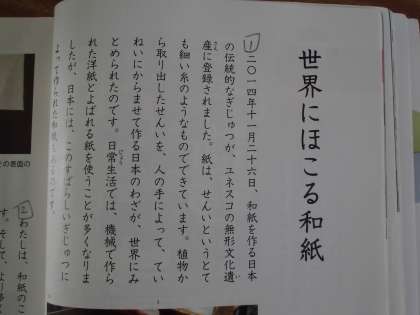 世界にほこる和紙
1
二〇一四年十一月二十六日、和紙を作る日本
の伝統的なぎじゅつが、ユネスコの無形文化遺
産に登録されました。紙は、せんいというとて
も細い糸のようなものでできています。植物か
ら取り出したせんいを、人の手によって、てい
ねいにからませて作る日本のわざが、世界にみ
とめられたのです。日常生活では、機械で作ら
れた洋紙とよばれる紙を使うことが多くなりま
したが、日本には、このすばらしいぎじゅつに
よって作られた和紙もあるのです。
2
わたしは、和紙のこ
す。そして、より多く
その表面の